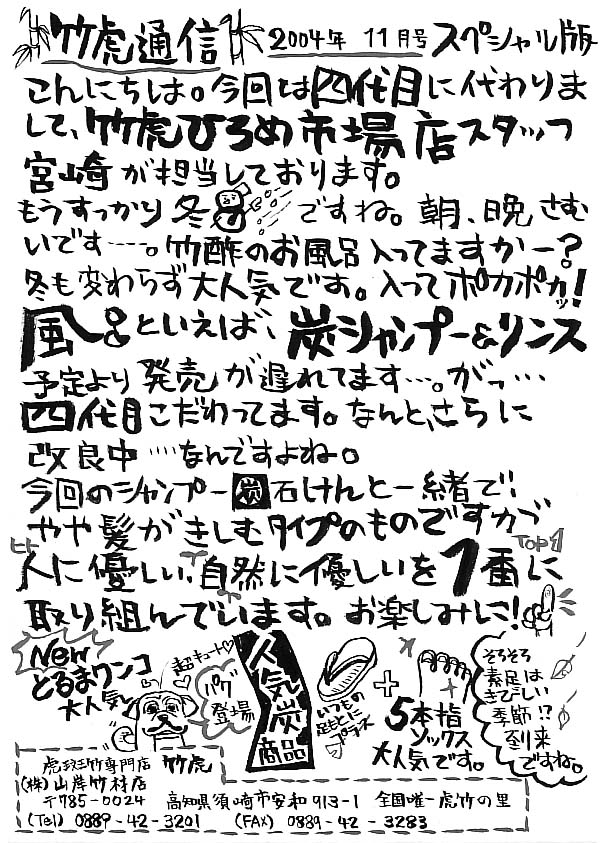 竹虎通信 2004年 11月号 スペシャル版
こんにちは。今回は四代目に代わりま
して、竹虎ひろめ市場店スタッフ
宮崎が担当しております。
もうすっかり冬ですね。朝、晩さむ
いです……。竹酢のお風呂入ってますかー?
冬も変わらず大人気です。入ってポカポカッ!
風呂といえば、炭シャンプー&リンス
予定より発売が遅れてます…。がっ…
四代目こだわってます。なんと、さらに
改良中…なんですよね。
今回のシャンプー炭石けんと一緒で、
やや髪がきしむタイプのものですがっ、
ヒト TOP1
人に優しい、自然に優しいを1番に
取り組んでいます。お楽しみに!
New
とるまワンコ
大人気
超キュート♡
パグ
登場
人気炭
商品
いつもの
足もとに
プラス
+
5本指
ソックス
大人気です。
そろそろ
素足は
きびしい
季節!?
到来
ですね。
虎斑竹専門店 竹虎
(株)山岸竹材店
〒785-0024 高知県須崎市安和913-1 全国唯一虎竹の里
(Tel) 0889-42-3201 (FAX) 0889-42-3283